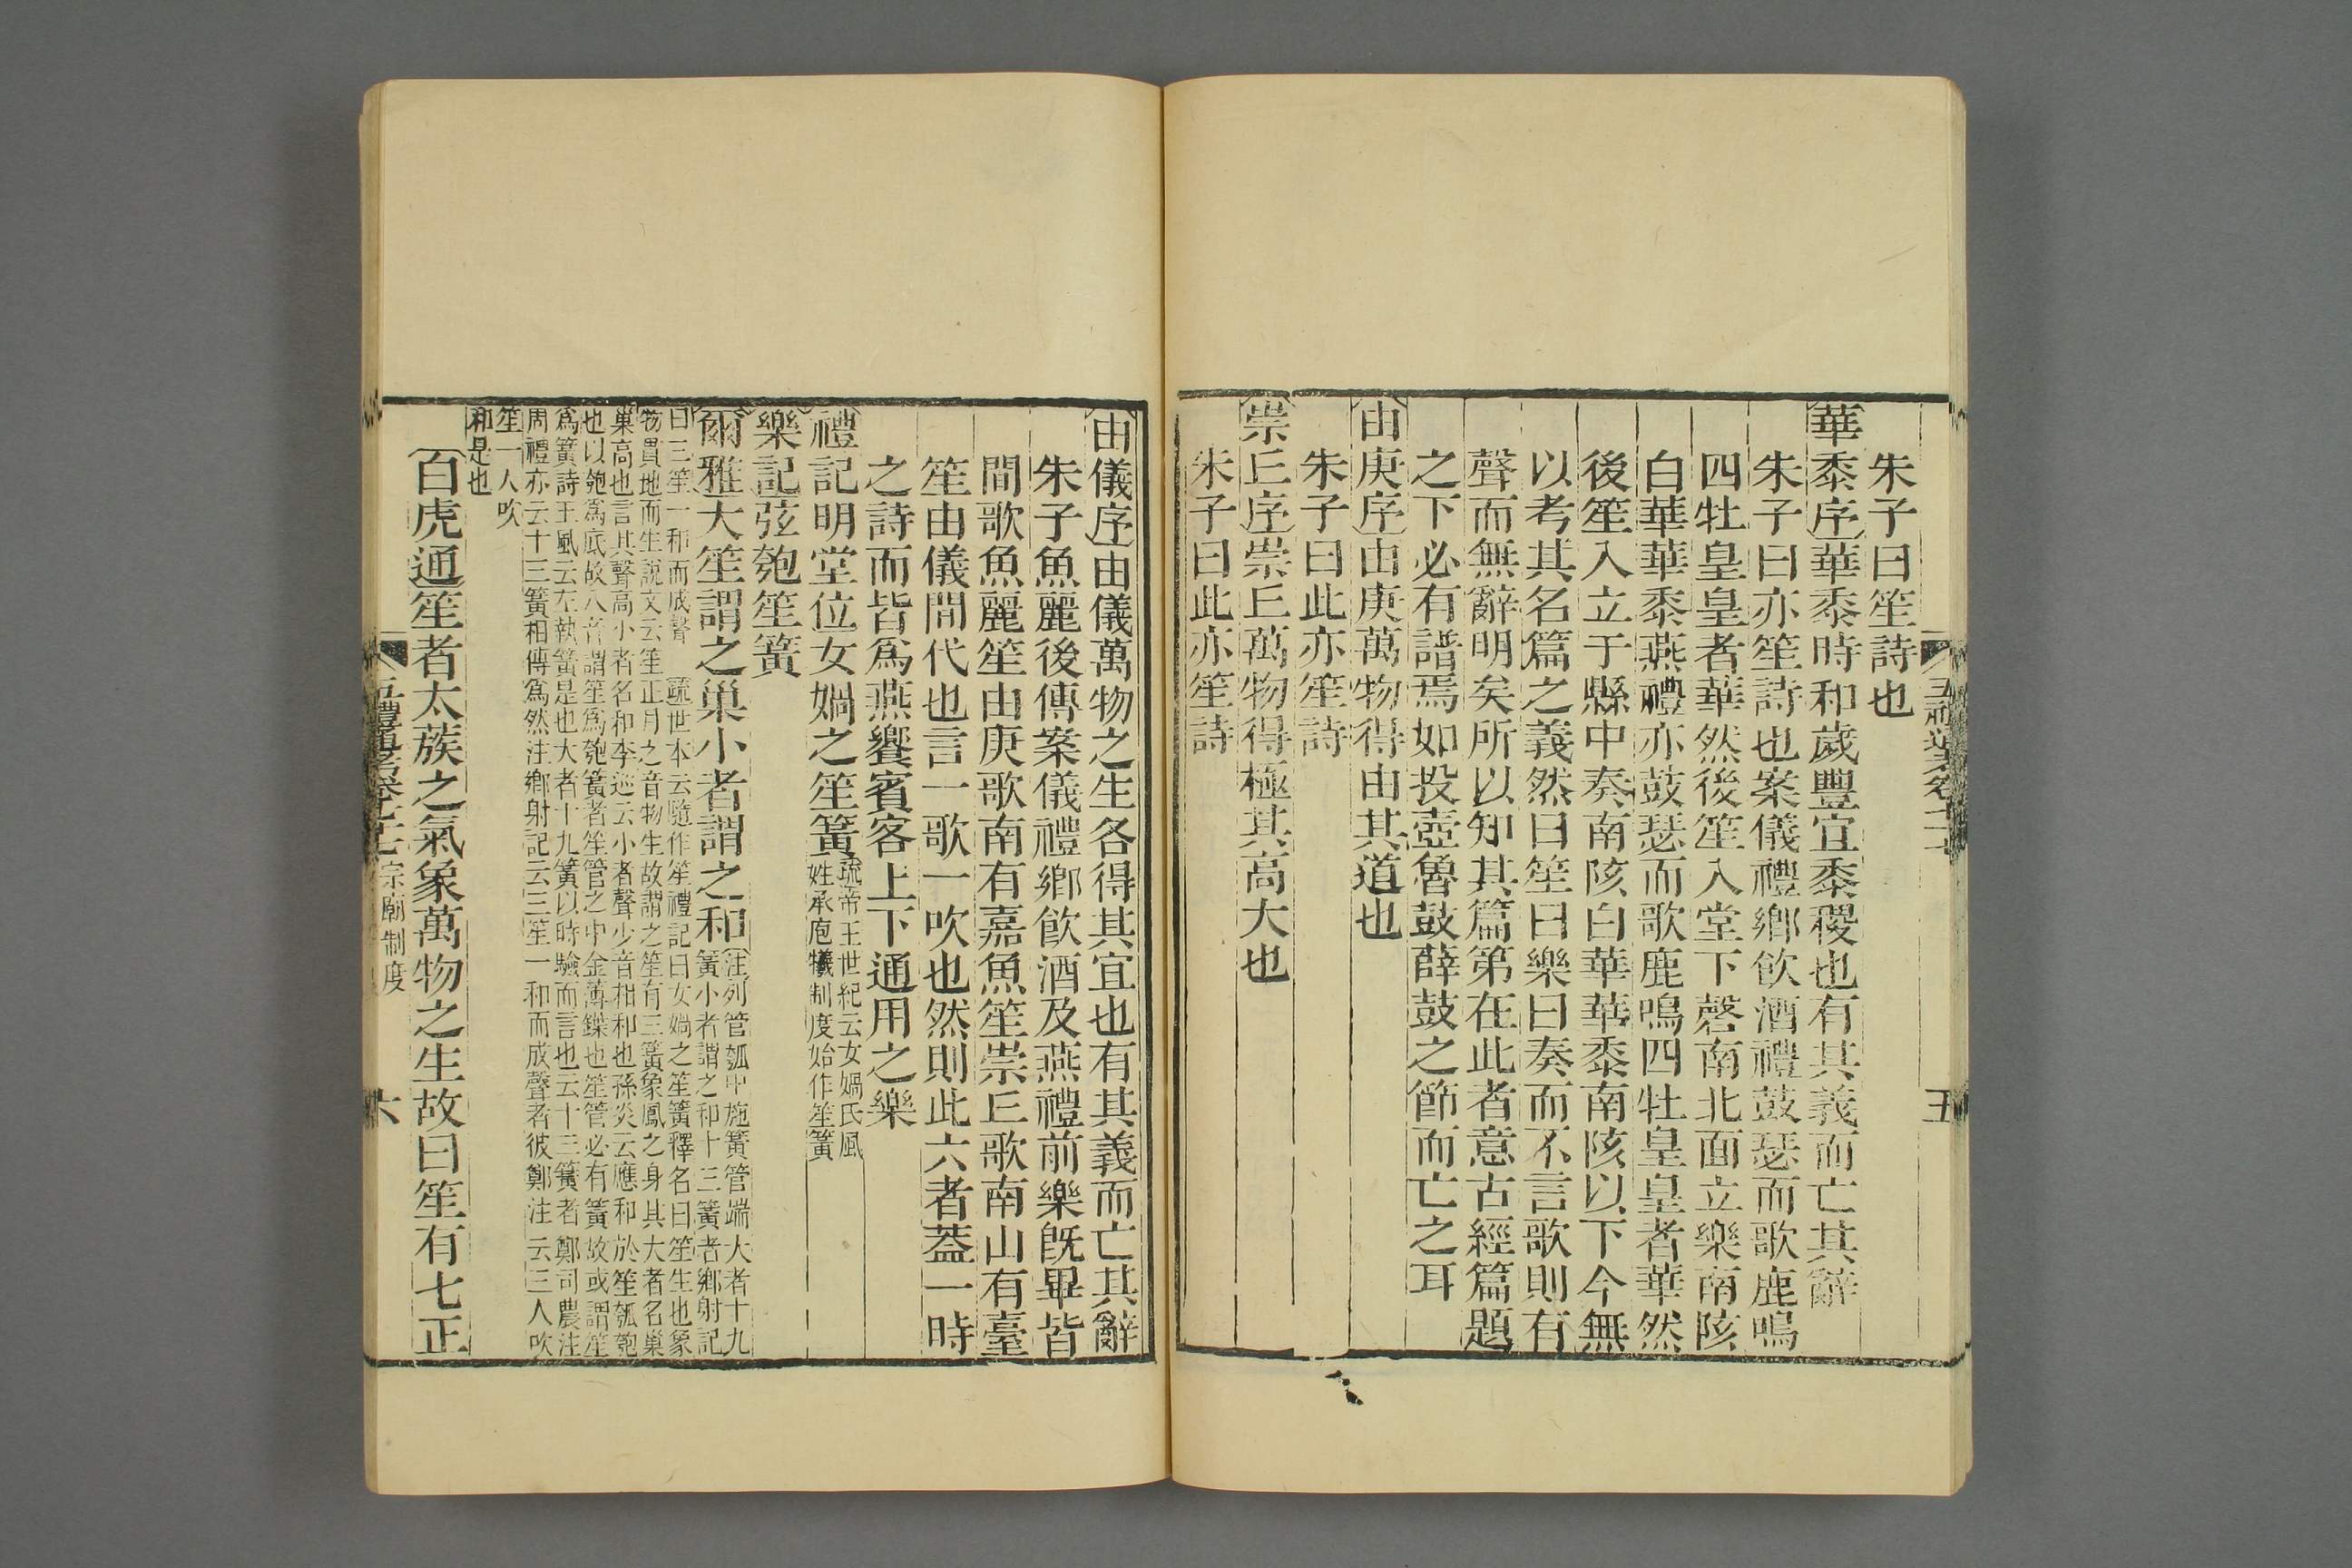 五
朱子曰笙詩也
華黍序華黍時和歲豐宜黍稷也有其義而亡其辭
朱子曰亦笙詩也案儀禮鄉飮酒禮鼓瑟而歌鹿鳴
四牡皇皇者華然後笙入堂下磬南北面立樂南陔
白華華黍燕禮亦鼓瑟而歌鹿鳴四牡皇皇者華然
後笙入立于縣中奏南陔白華華黍南陔以下今無
以考其名篇之義然曰笙曰樂曰奏而不言歌則有
聲而無辭明矣所以知其篇第在此者意古經篇題
之下必有譜焉如投壺魯鼓薛鼓之節而亡之耳
由庚序由庚萬物得由其道也
朱子曰此亦笙詩
崇丘序崇丘萬物得極其高大也
朱子曰此亦笙詩
由儀序由儀萬物之生各得其宜也有其義而亡其辭
朱子魚麗後傳案儀禮鄉飮酒及燕禮前樂旣畢皆
間歌魚麗笙由庚歌南有嘉魚笙崇丘歌南山有臺
笙由儀間代也言一歌一吹也然則此六者蓋一時
之詩而皆爲燕饗賓客上下通用之樂
禮記明堂位女媧之笙簧疏帝王世紀云女媧氏風
姓承庖犧制度始作笙簧
樂記弦匏笙簧
爾雅大笙謂之巢小者謂之和注列管瓠中施簧管端大者十九
簧小者謂之和十三簧者鄉射記
曰三笙一和而成聲 疏世本云隨作笙禮記曰女媧之笙簧釋名曰笙生也象
物貫地而生說文云笙正月之音物生故謂之笙有三簧象鳳之身其大者名巢
巢高也言其聲高小者名和李巡云小者聲少音相和也孫炎云應和於笙瓠匏
也以匏爲底故八音謂笙爲匏簧者笙管之中金薄鐷也笙管必有簧故或謂笙
爲簧詩王風云左執簧是也大者十九簧以時驗而言也云十三簧者鄭司農注
周禮亦云十三簧相傳爲然注鄉射記云三笙一和而成聲者彼鄭注云三人吹
笙一人吹
和是也
百虎通笙者太蔟之氣象萬物之生故曰笙有七正
宗廟制度
六